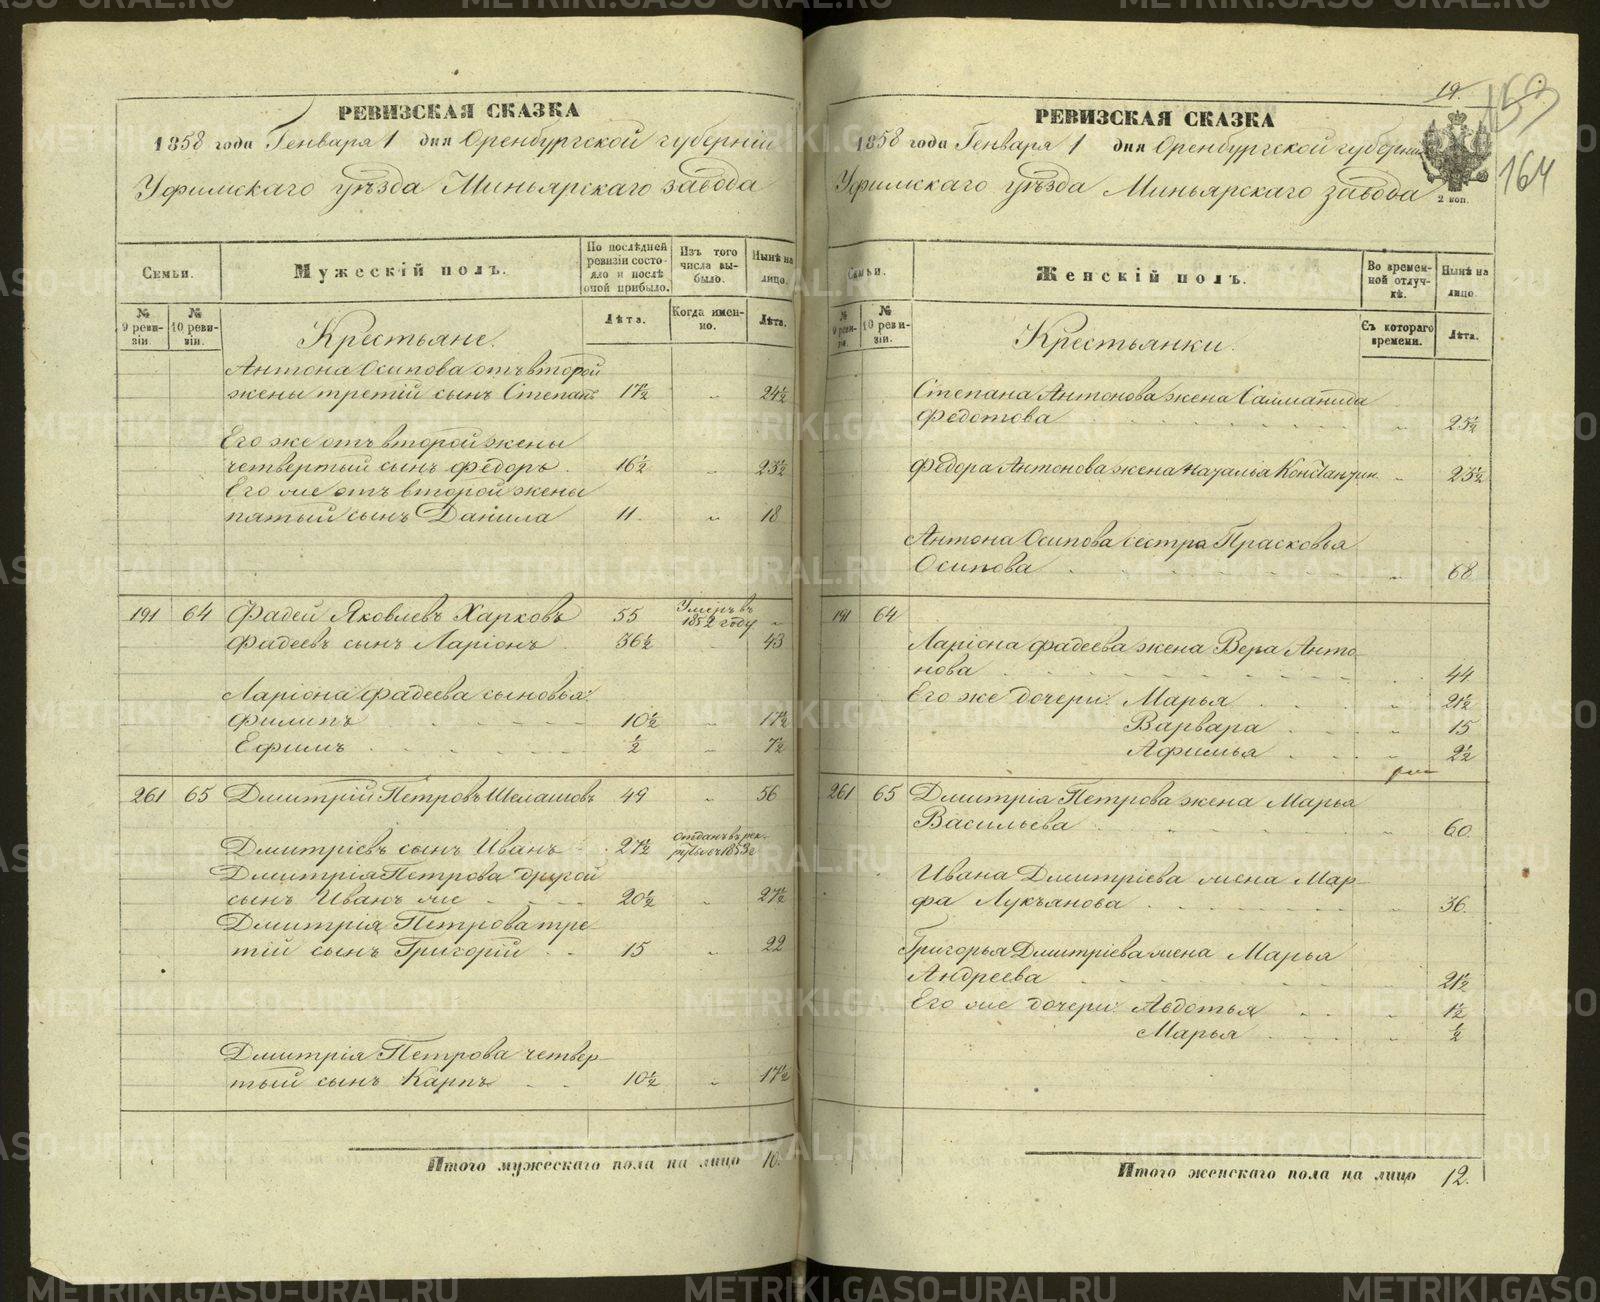 РЕВИЗСКАЯ СКАЗКА
1858 года Генваря 1 дня Оренбургской губерніи
Уфимскаго уѣзда Миньярскаго завода
Семьи.
Мужескій полъ.
По послѣдней ревизіи состояло и послѣ оной прибыло.
Изъ того числа выбыло.
Нынѣ на лицо.
№ 9 ревизіи.
№ 10 ревизіи.
Крестьяне.
Лѣта.
Когда именно.
Лѣта.
Антона Осипова отъ второй
жены третій сынъ Степанъ 17½ „ 24½
Его же отъ второй жены
четвертый сынъ Федоръ 16½ „ 23½
Его же отъ второй жены
пятый сынъ Данила 11 „ 18
191 64 Фадей Яковлевъ Харковъ 55 Умеръ въ 1852 году „
Фадеевъ сынъ Ларіонъ 36½ 43
Ларіона Фадеева сыновья:
Филипъ 10½ „ 17½
Ефимъ ½ „ 7½
261 65 Дмитрій Петровъ Шелашовъ 49 „ 56
Дмитріевъ сынъ Иванъ 27½ отданъ въ рекруты въ 1853 г
Дмитрія Петрова другой
сынъ Иванъ же 20½ „ 27½
Дмитрія Петрова тре
тій сынъ Григорій 15 „ 22
Дмитрія Петрова четвер
тый сынъ Карпъ 10½ „ 17½
Итого мужескаго пола на лицо 10.
19.
153
164
2 коп.
РЕВИЗСКАЯ СКАЗКА
1858 года Генваря 1 дня Оренбургской губерніи
Уфимскаго уѣзда Миньярскаго завода
Семьи.
Женскій полъ.
Во временной отлучкѣ.
Нынѣ на лицо.
№ 9 ревизіи.
№ 10 ревизіи.
Крестьянки.
Съ котораго времени.
Лѣта.
Степана Антонова жена
Федотова „ 25½
Федора Антонова жена Наталья Константин. „ 23½
Антона Осипова сестра Прасковья
Осипова „ 68
191 64
Ларіона Фадеева жена Вера Анто
нова 44
Его же дочери: Марья „ 21½
Варвара „ 15
Афимья „ 2½
261 65 Дмитрія Петрова жена Марья
Васильева „ 60
Ивана Дмитріева жена Мар
фа Лукъянова „ 36
Григорья Дмитріева жена Марья
Андреева „ 21½
Его же дочери: Авдотья „ 1½
Марья „ ½
Итого женскаго пола на лицо 12.
METRIKI.GASO-URAL.RU